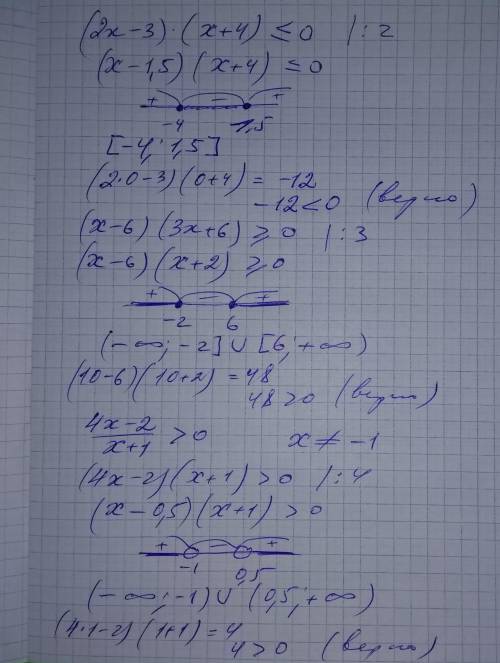 (2x-3)·(x+4) ≤ 0 |:2
(x-1,5)(x+4) ≤ 0
+ - +
-4 1,5
[-4; 1,5]
(2·0-3)(0+4) = -12
-12 < 0 (верно)
(x-6)(3x+6) ≥ 0 |:3
(x-6)(x+2) ≥ 0
+ - +
-2 6
(-∞; -2] ∪ [6; +∞)
(10-6)(10+2) = 48
48 > 0 (верно)
4x-2/x+1 > 0 x ≠ -1
(4x-2)(x+1) > 0 |:4
(x-0,5)(x+1) > 0
+ - +
-1 0,5
(-∞; -1) ∪ (0,5; +∞)
(4·1-2)(1+1) = 4
4 > 0 (верно)